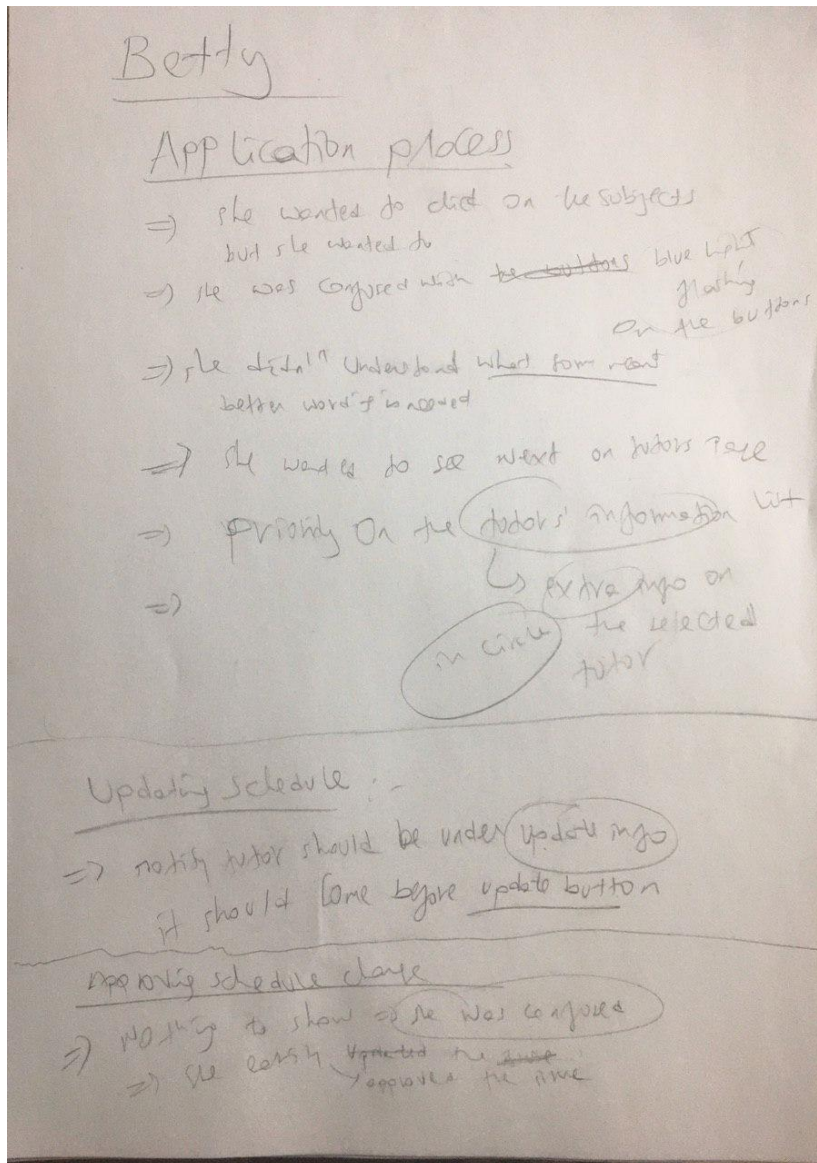 Betty
Application process
=> she wanted to click on the subjects
but she wanted to
=> she was confused with the buttons blue light
flashing
on the buttons
=> she didn't understand what form meant
better wording is needed
=> she wanted to see next on tutors page
=> priority on the tutors' information list
↳ extra info on
=>
the selected
in circle
tutor
Updating schedule :-
=> notify tutor should be under update info
it should come before update button
Approving schedule change
=> Nothing to show => she was confused
=> she easily updated the
→ approved the time